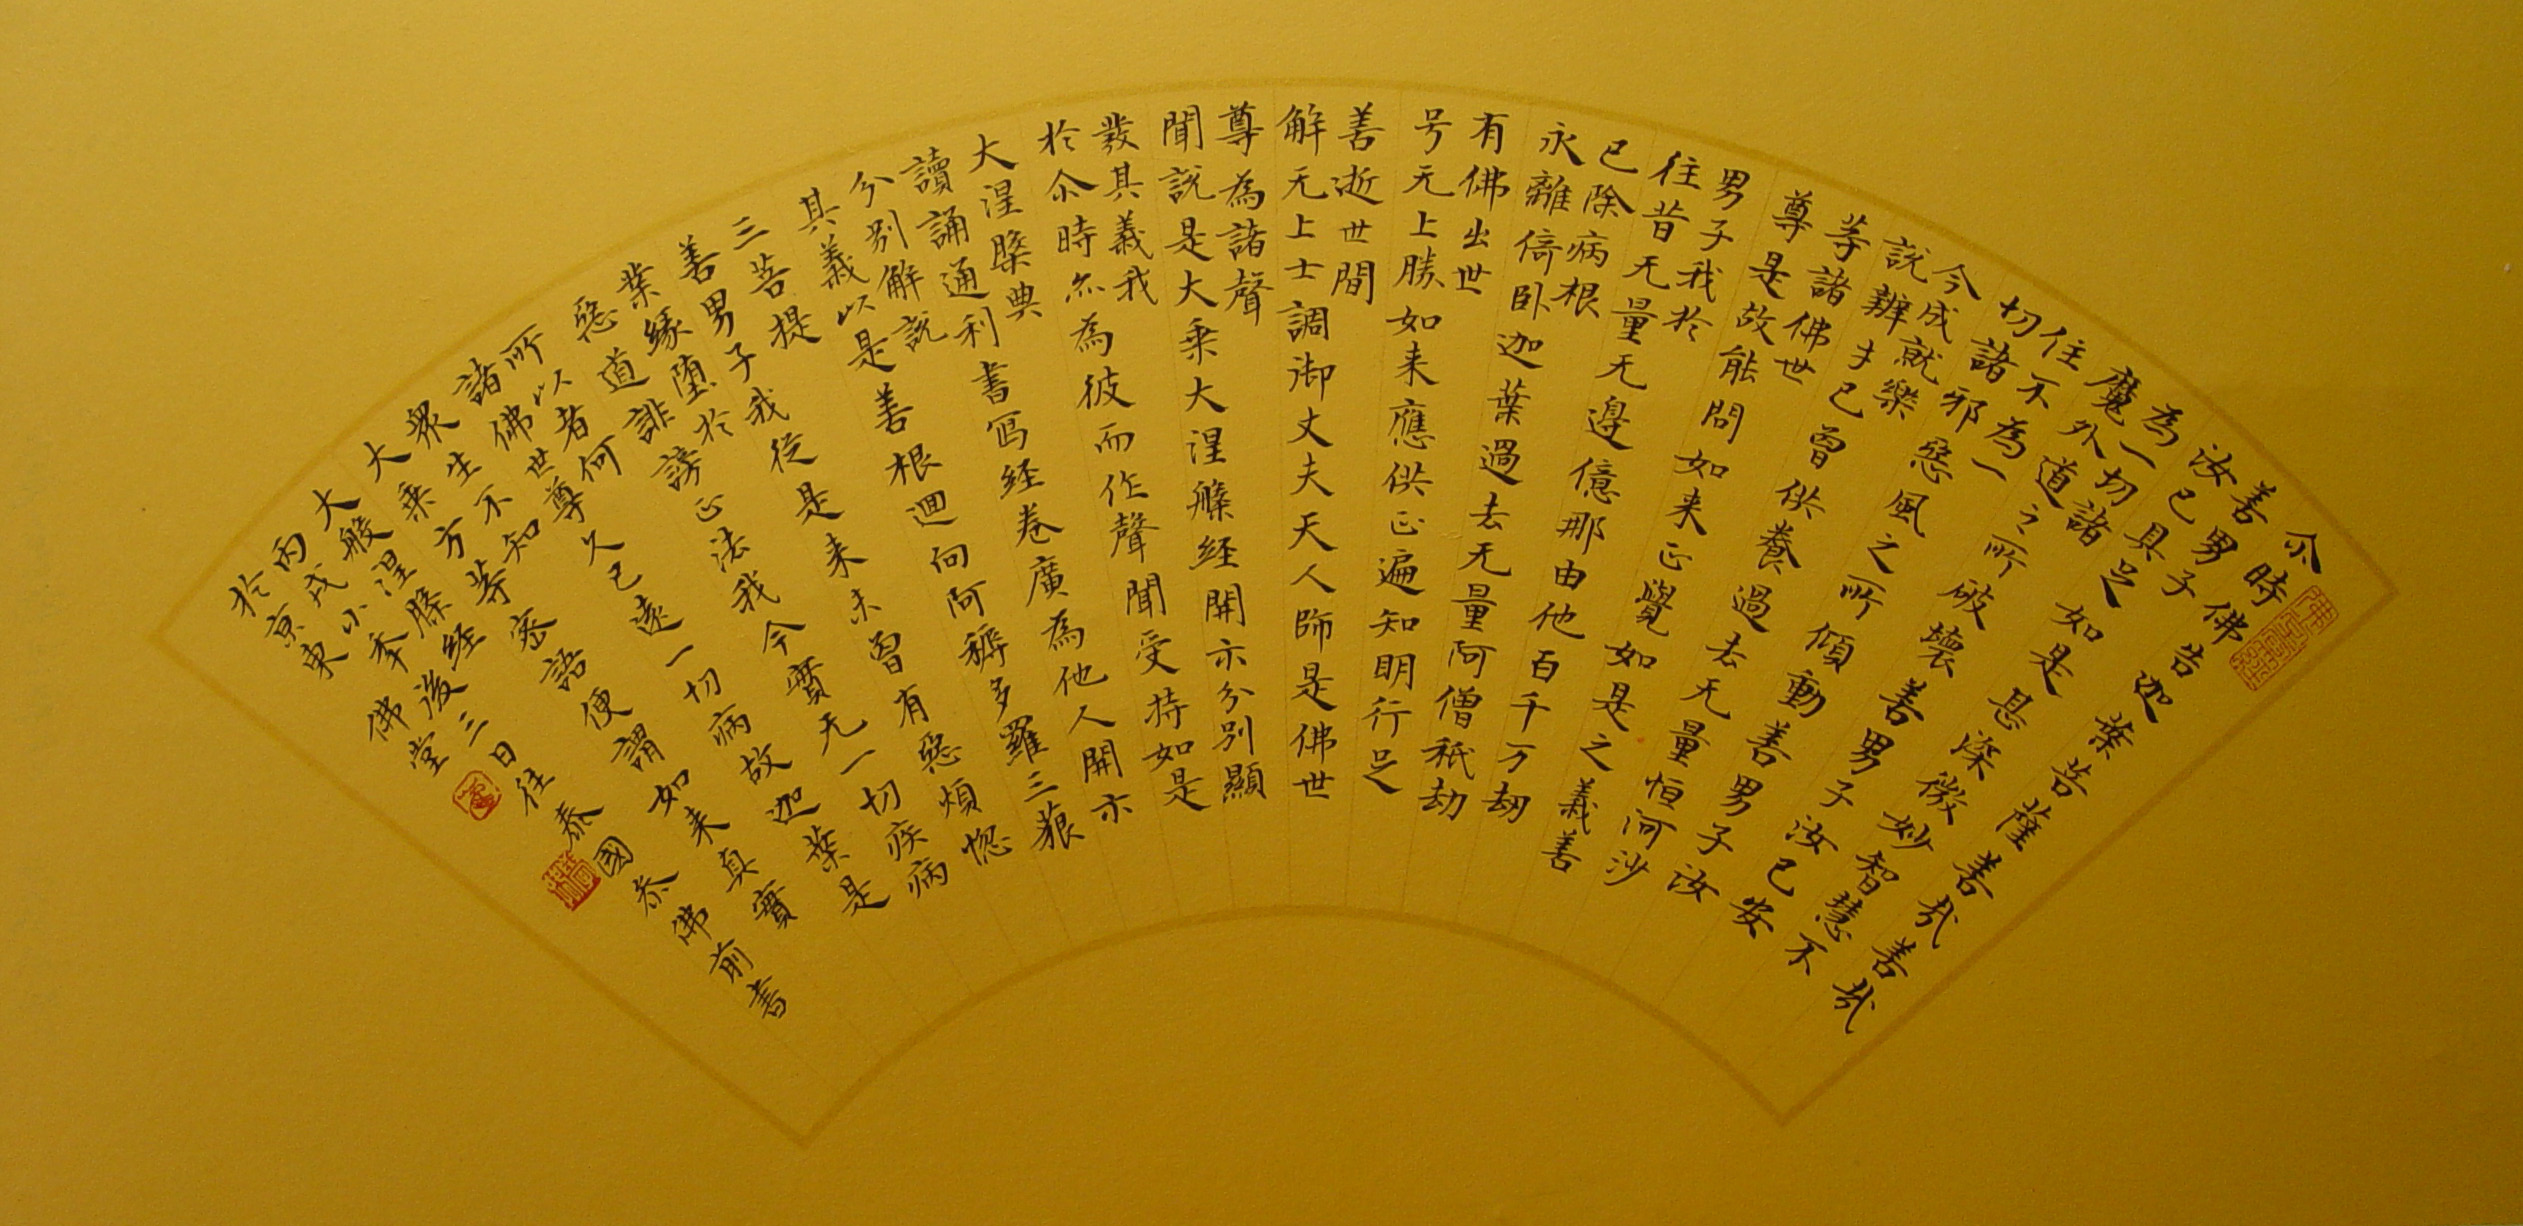 尒時佛告迦葉菩薩善哉善哉
善男子
汝已具足如是甚深微妙智慧不
為一切諸
魔外道之所破壞善男子汝已安
住不為一
切諸邪惡風之所傾動善男子汝
今成就樂
說辯才已曾供養過去无量恒河沙
等諸佛世
尊是故能問如来正覺如是之義善
男子我於
往昔无量无邊億那由他百千万劫
已除病根
永離倚卧迦葉過去无量阿僧祇劫
有佛出世
号无上勝如来應供正遍知明行足
善逝世間
解无上士調御丈夫天人師是佛世
尊為諸聲
聞說是大乗大涅槃経開示分別顯
發其義我
於尒時亦為彼而作聲聞受持如是
大涅槃典
讀誦通利書寫経卷廣為他人開示
分別解說
其義以是善根迴向阿耨多羅三藐
三菩提
善男子我從是来未曾有惡煩惱
業緣墮於
惡道誹謗正法我今實无一切疾病
所以者何
諸佛世尊久已遠一切病故迦葉是
眾生不知
大乗方等密語便謂如来真實
大般涅槃経
丙戌小季後三日往泰國泰佛前書
於京東佛堂